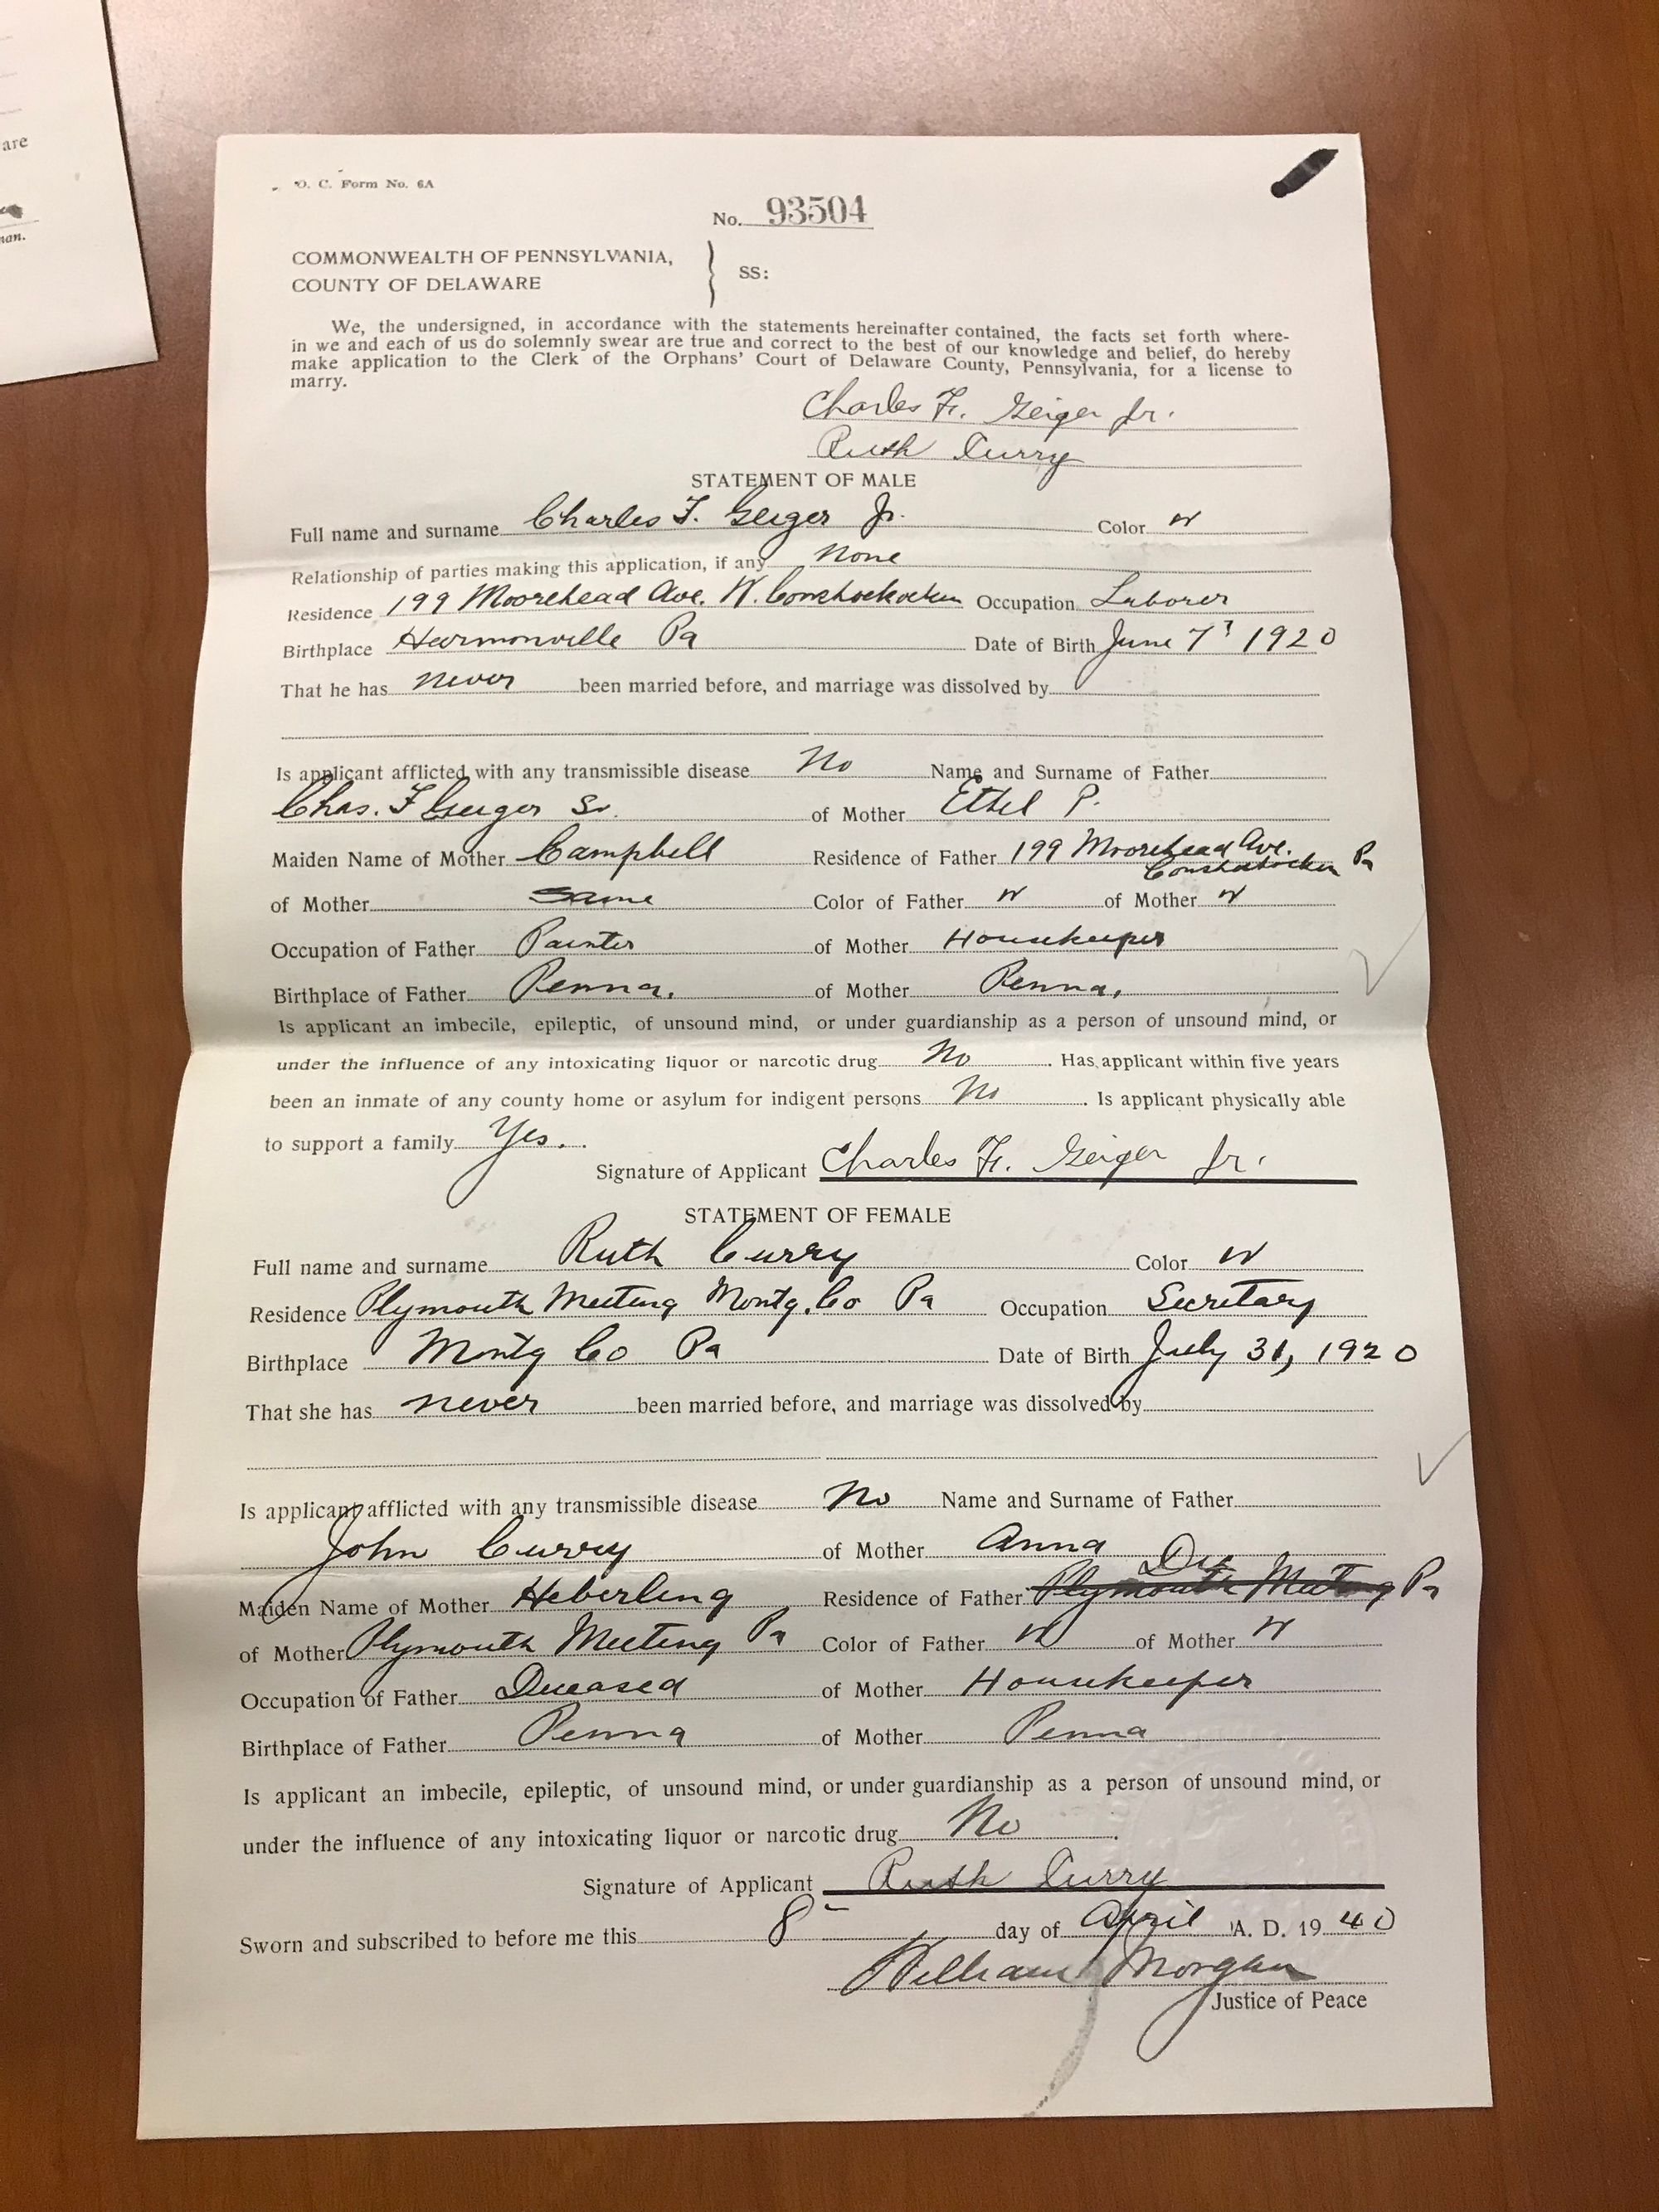 are
man.
O. C. Form No. 6A
No. 93504
COMMONWEALTH OF PENNSYLVANIA,
COUNTY OF DELAWARE
SS:
We, the undersigned, in accordance with the statements hereinafter contained, the facts set forth where-
in we and each of us do solemnly swear are true and correct to the best of our knowledge and belief, do hereby
make application to the Clerk of the Orphans' Court of Delaware County, Pennsylvania, for a license to
marry.
Charles F. Geiger Jr.
Ruth Curry
STATEMENT OF MALE
Full name and surname Charles F. Geiger Jr. Color W
Relationship of parties making this application, if any None
Residence 199 Moorehead Ave. W. Conshohocken Occupation Laborer
Birthplace Harmonville Pa Date of Birth June 7, 1920
That he has never been married before, and marriage was dissolved by
Is applicant afflicted with any transmissible disease No Name and Surname of Father
Chas. F Geiger Sr. of Mother Ethel P.
Maiden Name of Mother Campbell Residence of Father 199 Moorehead Ave.
Conshohocken Pa
of Mother Same Color of Father W of Mother W
Occupation of Father Painter of Mother Housekeeper
Birthplace of Father Penna. of Mother Penna.
Is applicant an imbecile, epileptic, of unsound mind, or under guardianship as a person of unsound mind, or
under the influence of any intoxicating liquor or narcotic drug No. Has applicant within five years
been an inmate of any county home or asylum for indigent persons No. Is applicant physically able
to support a family Yes.
Signature of Applicant Charles F. Geiger Jr.
STATEMENT OF FEMALE
Full name and surname Ruth Curry Color W
Residence Plymouth Meeting Montg. Co Pa Occupation Secretary
Birthplace Montg Co Pa Date of Birth July 31, 1920
That she has never been married before, and marriage was dissolved by
Is applicant afflicted with any transmissible disease No Name and Surname of Father
John Curry of Mother Anna
Maiden Name of Mother Heberling Residence of Father Plymouth Meeting Pa
of Mother Plymouth Meeting Pa Color of Father W of Mother W
Occupation of Father Deceased of Mother Housekeeper
Birthplace of Father Penna of Mother Penna
Is applicant an imbecile, epileptic, of unsound mind, or under guardianship as a person of unsound mind, or
under the influence of any intoxicating liquor or narcotic drug No.
Signature of Applicant Ruth Curry
Sworn and subscribed to before me this 8 day of April A. D. 1940
William Morgan
Justice of Peace